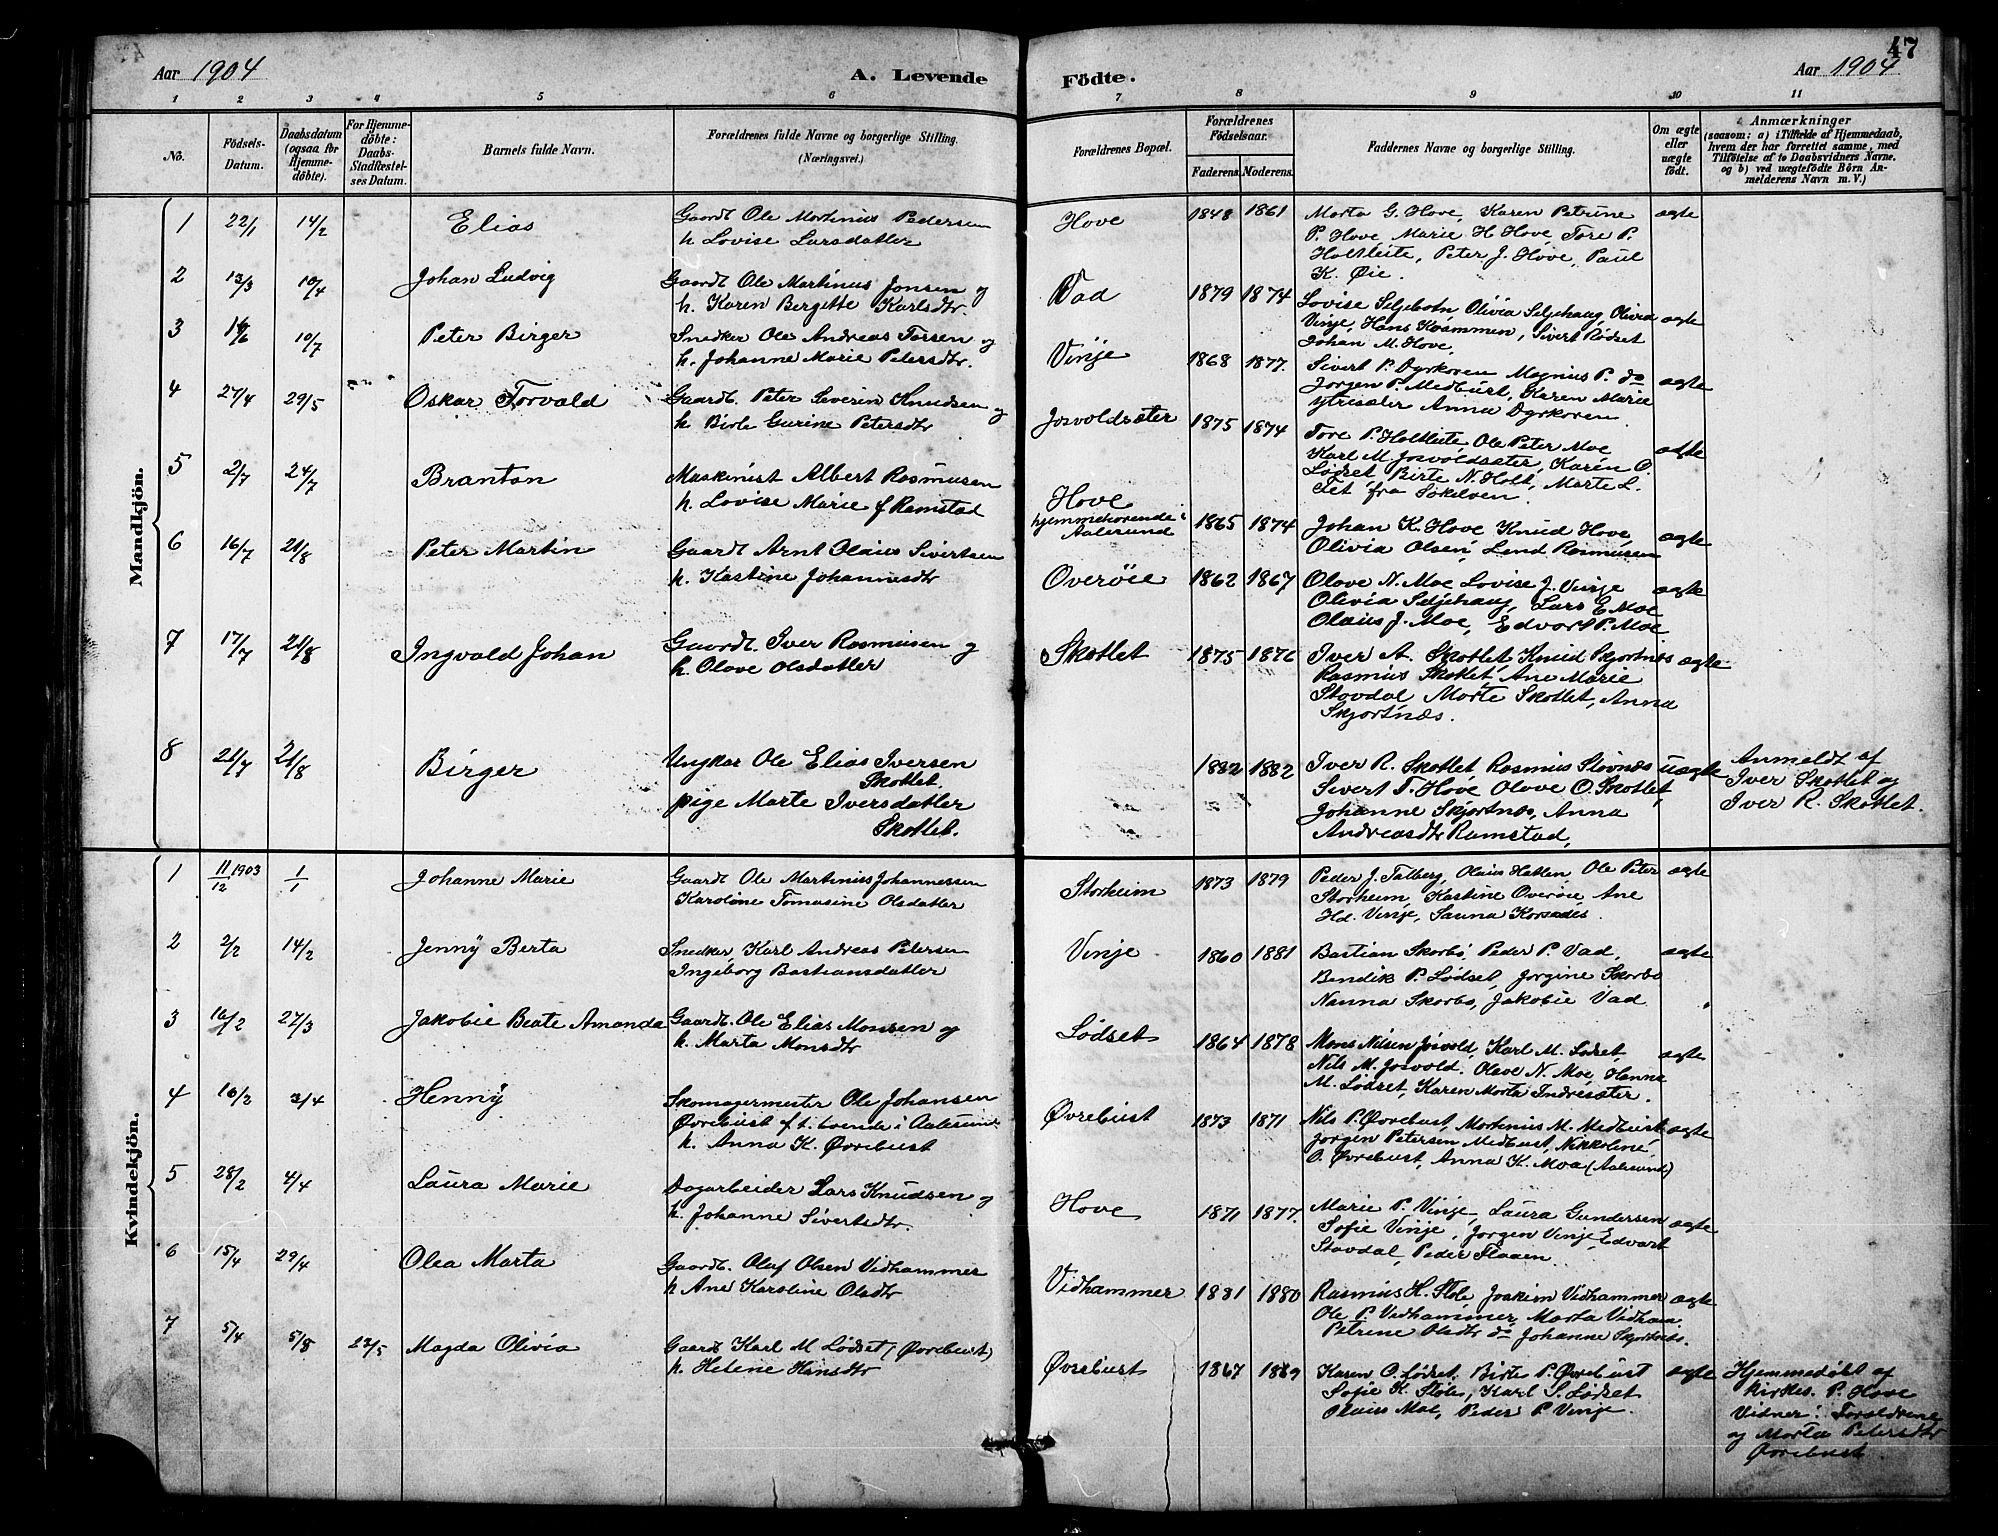 47
Aar 1904
A. Levende Födte.
Aar 1904
1 2 3 4 5 6 7 8 9 10 11
No.
Födsels-Datum.
Daabsdatum (ogsaa for Hjemme-döbte).
For Hjemme-döbte: Daabs-Stadfæstel-ses Datum.
Barnets fulde Navn.
Forældrenes fulde Navne og borgerlige Stilling. (Næringsvei.)
Forældrenes Bopæl.
Forældrenes Födselsaar.
Faderens. Moderens.
Faddernes Navne og borgerlige Stilling.
Om ægte eller uægte födt.
Anmærkninger
(saasom: a) i Tilfælde af Hjemmedaab, hvem der har forrettet samme, med Tilföielse af to Daabsvidners Navne. og b) ved uægtefödte Börn Anmelderens Navn m. V.)
Mandkjön.
1 22/1 14/2 Elias
Gaardt Ole Martinius Pedersen
h Lovise Larsdatter
Hove 1848 1861
Marta G. Hove, Karen Petrine
P. Hove Marie H Hove, Tore P.
Holtleite, Peter J. Hove, Paul
K. Øie.
ægte
2 13/3 10/4 Johan Ludvig
Gaardt Ole Martinus Jonsen og
h. Karen Bergitte Karlsdtr.
Vad 1879 1874
Lovise Seljebotn Olivia Seljehaug Olivia
Vinje, Hans Kvammen, Sivert Rødset
Johan M. Hove,
ægte
3 10/7 Peter Birger
Snedker Ole Andreas Torsen og
h. Johanne Marie Petersdtr.
Vinje 1868 1877.
Sivert P. Dyrkoren Magnus P. do
Jørgen P. Medbust, Karen Marie
Ytresæter Anna Dyrkoren
ægte
4 27/4 29/5 Oskar Torvald
Gaardb. Peter Severin Knudsen og
h Birte Gurine Petersdtr
Josvoldsæter 1875 1874
Tore P. Holtleite, Ole Peter Moe
Karl M. Josvoldsæter, Karen O.
Lødset Birte N. Holt, Marte L.
Tet fra Søkelven
ægte
5 2/7 24/7 Brantón
Maskinist Albert Rasmusen
h. Lovise Marie f Ramstad
Hove
hjemmehørende i
Aalesund
1865 1874
Johan K. Hove Knud Hove
Olivia Olsen, Lend Rasmusen
ægte
6 16/7 21/8 Peter Martin
Gaardt Arnt Olaus Sivertsen
h. Kastine Johannesdtr
Overøie 1862 1867
Olave N. Moe Lovise J. Vinje
Olivia Seljehaug, Lars E Moe
Olaus J. Moe, Edvart P. Moe
ægte
7 17/7 21/8 Ingvald Johan
Gaardt. Iver Rasmusen og
h. Olave Olsdatter
Skotlet 1875 1876
Iver A. Skotlet Knud Skjortnes
Rasmus Skotlet, Ane Marie
Stavdal Marte Skotlet, Anna
Skjortnæs.
ægte
8 21/7 21/8 Birger
Ungkar Ole Elias Iversen
Skotlet.
pige Marte Iversdatter
Skotlet.
1882 1882
Iver R. Skotlet Rasmus Stovnæs
Sivert T. Hove Olave O. Skotlet,
Johanne Skjortnæs, Anna
Andreasdtr Ramstad,
uægte
Anmeldt af
Iver Skotlet og
Iver R. Skotlet.
Kvindekjön.
1 11/12 1903 1/1 Johanne Marie
Gaardt Ole Martinus Johannessen
Karoline Tomasine Olsdatter
Storheim 1873 1879
Peder J. Talberg, Olaus Hatlen Ole Peter
Storheim, Kastine Overøie Ane
Hd. Vinje,
ægte
2 2/2 14/2 Jenny Berta
Snedker, Karl Andreas Petersen
Ingeborg Bastiansdatter
Vinje 1860 1881
Bastian Skorbø, Peder P. Vad,
Bendik P. Lødset, Jørgine Skorbø
Nanna Skorbø, Jakobie Vad
ægte
3 16/2 27/3 Jakobie Beate Amanda
Gaardb. Ole Elias Monsen og
h. Marta Monsdtr
Lødset 1864 1878
Mons Nilsen Josvold, Karl M. Lødset
Nils M. Josvold. Olave N. Moe, Hanna
M. Lødset, Karen Marta Indresæter.
ægte
4 16/2 3/4 Henny
Skomagermester Ole Johansen
Øvrebust f. t. boende i Aalesund
h. Anna K. Øvrebust
Øvrebust 1873 1871
Nils P. Øvrebust, Martinius M. Medbust
Jørgen Petersen Medbust, Nikkoline
O. Øvrebust, Anna K. Moa (Aalesund)
ægte
5 28/2 4/4 Laura Marie
Dagarbeider Lars Knudsen og
h. Johanne Sivertsdtr.
Hove 1871 1877.
Marie P. Vinje, Laura Gundersen
Sofie Vinje, Jørgen Vinje, Edvart
Stavdal, Peder Flaaen
ægte
6 15/4 29/4 Olea Marta
Gaardb. Oluf Olsen Vidhammer
h Ane Karoline Olsdtr
Vidhammer 1881 1880
Rasmus H. Støle Joakim Vidhammer
Ole P. Vidhammer, Marta Vidham
Petrine Olsdtr do Johanne Skjortnæs.
ægte
7 5/4 5/8 23/5 Magda Olivia
Gaardb Karl M Lødset (Øvrebust)
h. Helene Hansdtr
Øvrebust 1867 1869
Karen O. Lødset. Birte P. Øvrebust
Sofie K. Støle, Karl S. Lødset
Olaus Moe, Peder P. Vinje.
ægte
Hjemmedøbt af
kirkes. P. Hove
Vidner: Forældrene
og Marta Petersdtr
Øvrebust